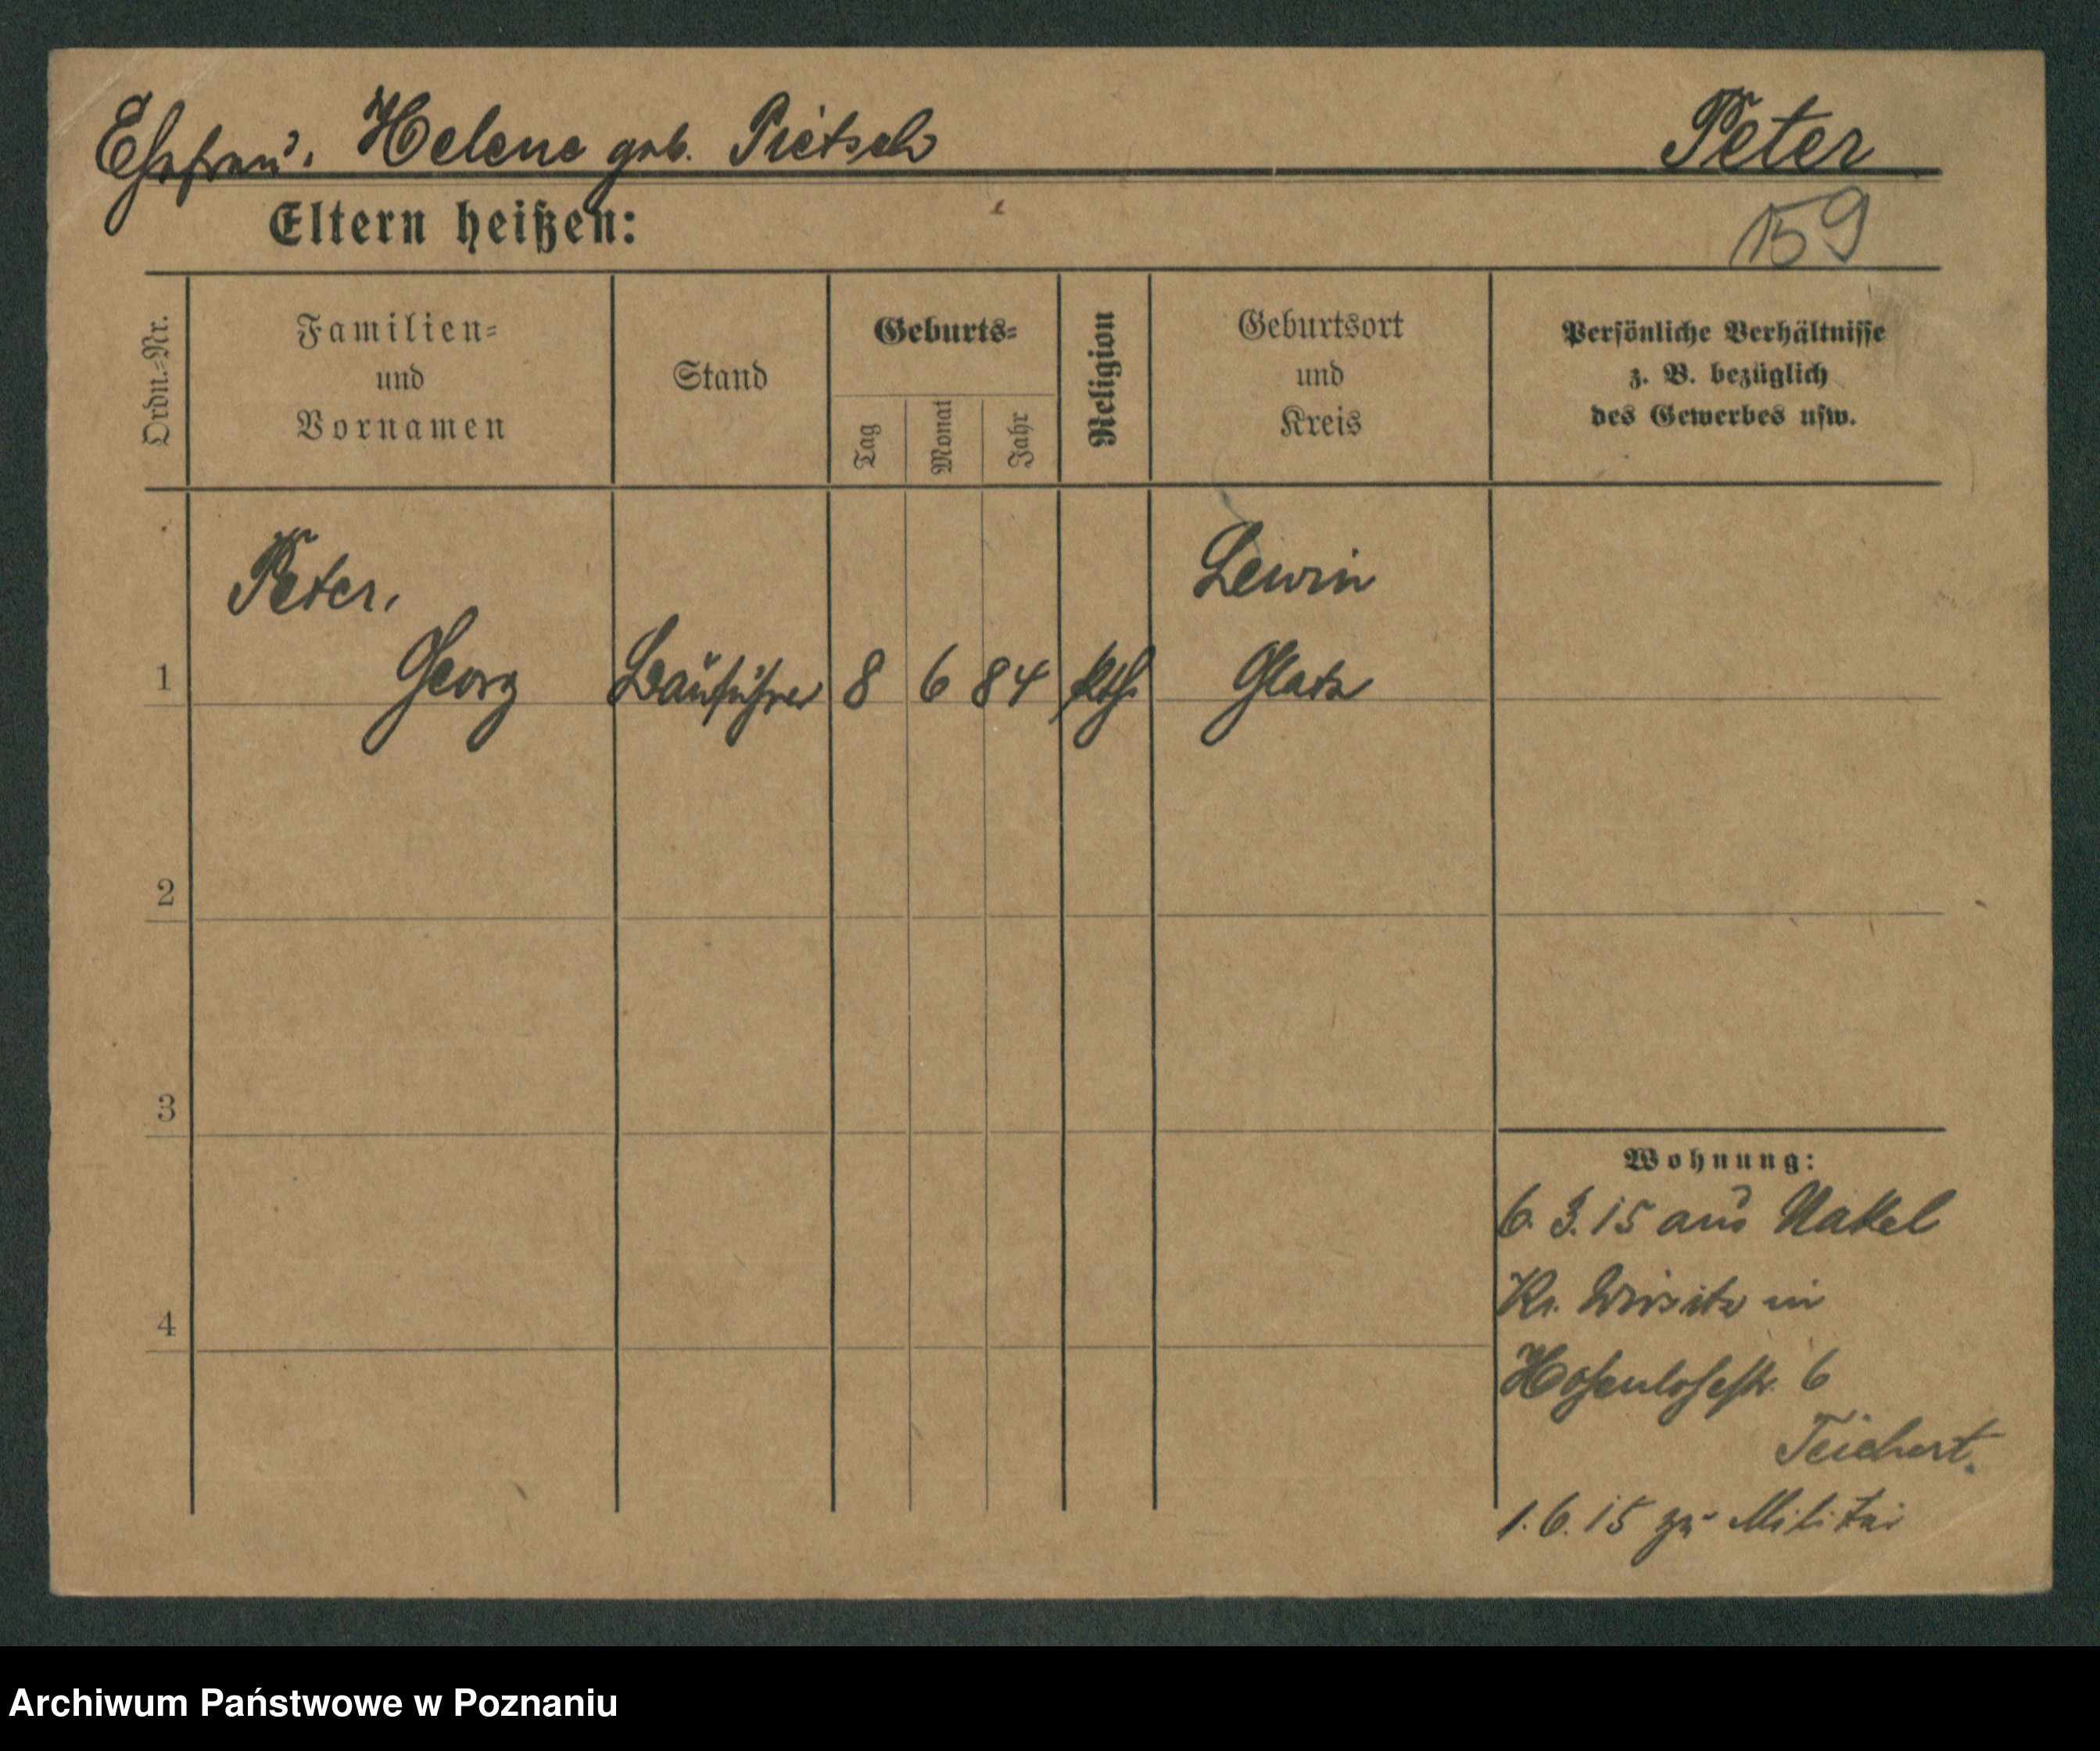 Ehefrau: Helene geb. Pietsch Peter
Eltern heißen: 159
Ordn.-Nr. Familien- und Vornamen Stand Geburts- Tag Monat Jahr Religion Geburtsort und Kreis Persönliche Verhältnisse z. B. bezüglich des Gewerbes usw.
Peter, Lewin
1 Georg Bauführer 8 6 84 kth. Glatz
2
3
Wohnung:
6. 3. 15 aus Nakel
Kr. Wirsitz in
4
Hohenlohestr. 6
Teichert.
1. 6. 15 zu Militär
Archiwum Państwowe w Poznaniu